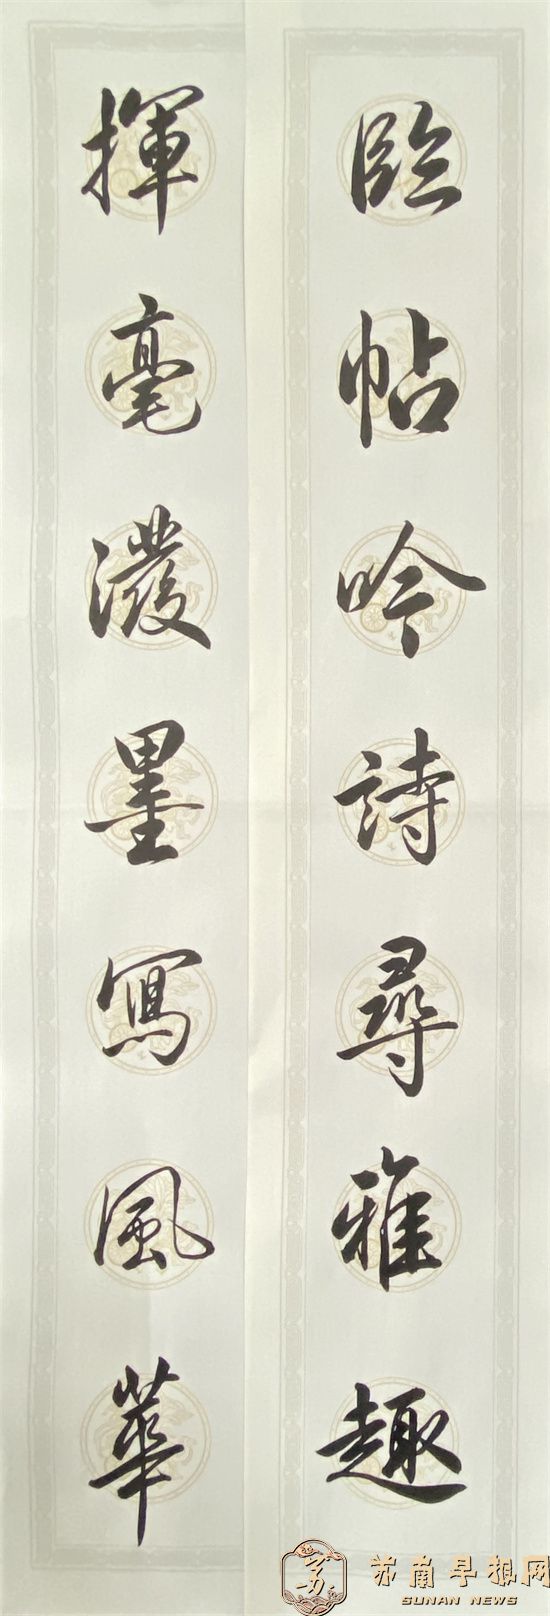 臨帖吟詩尋雅趣
揮毫潑墨寫風華
苏南早报网
SUNAN NEWS